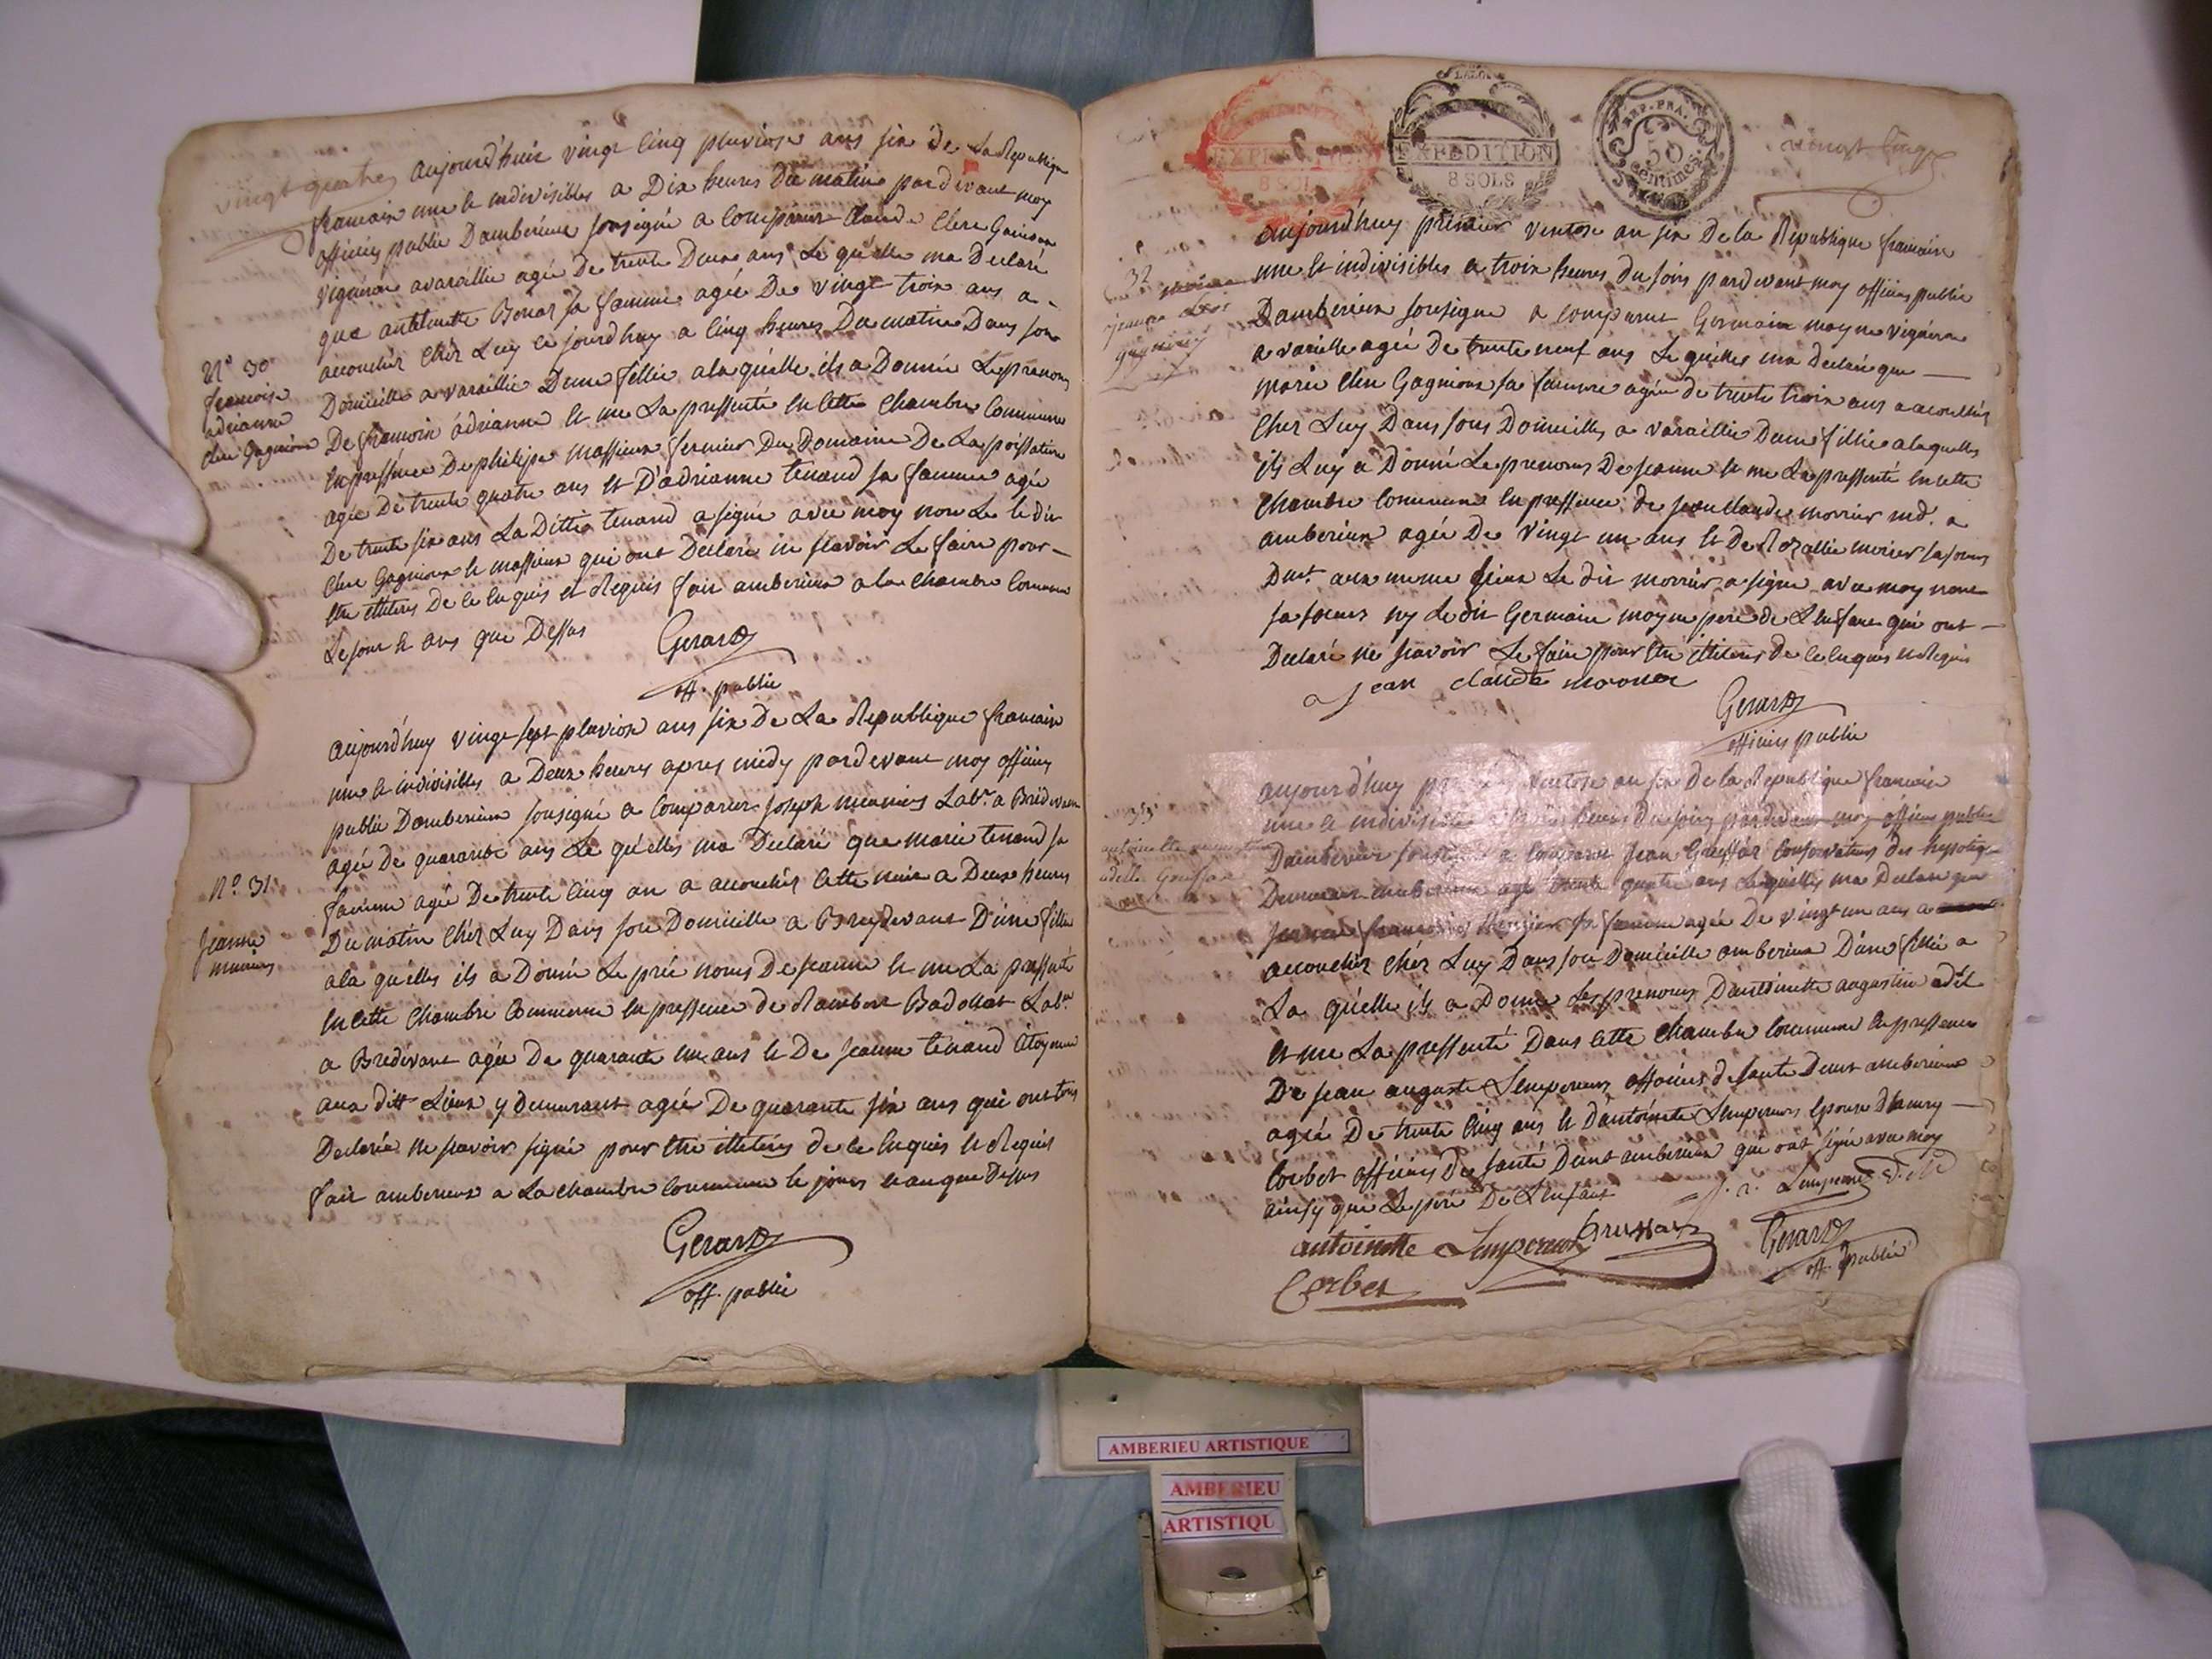 vingt quatre
aujourd'huit vingt cinq pluviose ans six de La Republique
francaise une et indivisibles a Dix heures du matin pardevant moy
officier public Dambérieux sousigné a comparut Claude Clere Gagnieux
vigneron avaraillie agée De trente Deux ans Le quélle ma Declaré
que antoinette Bonar sa famme agée De vingt trois ans a
accouchér chér Luy ce jourd'huy a cinq heures Du matin Dans son
Domicille a varaillie Dune fillie ala quélle ils a Donnée Le prenoms
De francoise adrianne et me La pressenté en cette chambre Commune
en pressence De philipe massieux fermier Du Domaine De La poissatiere
agée De trente quatre ans et D'adrianne tenand sa famme agée
De trente six ans La Ditte tenand a signé avec moy non Le le dit
Clere Gagnieux et massieux qui ont Déclaré ne scavoir Le faire pour
être illiterés De ce enquis et Requis fait amberieux a la chambre Commune
Le jour et ans que Dessus
N° 30
francoise
adrianne
Clere Gagnieux
Gerard
off. public
aujourd'huy vingt sept pluviose ans six De La Republique francaise
une et indivisibles a Deux heures apres midy pardevant moy officier
public Damberieux sousigné a Comparut Joseph meunier Lab.r a Brédevant
agée De quarante ans Le quélles ma Declaré que marie tenand sa
famme agée De trente cinq an a accouchér cette nuit a Deux heures
Du matin chér Luy Dans son Domicille a Breydevant D'une fille
ala quélles ils a Donnée Le pré noms De jeanne et me La pressenté
en cette chambre Commune en pressence de Rambert Badollat Lab.r
a Bredevant agée De quarante un ans et De jeanne tenand Citoyenne
aux ditt Lieux y demeurant agée De quarante six ans qui ont tous
Declarée ne scavoir signé pour être illiterés de ce enquis et Requis
fait amberieux a La chambre commune le jours et an que Dessus
N° 31
Jeanne
meunier
Gerard
off. public
EXPEDITION
8 SOLS
EXPEDITION
8 SOLS
REP. FRA.
50
centimes
vingt cinq
aujourd'huy premier ventose an six De la Republique francaise
une et indivisibles a trois heures du soirs pardevant moy officier public
Damberieux sousigné a comparut Germain moyne vigneron
a varaille agée de trente neuf ans Le quélles ma declaré que
marie Clere Gagnieux sa famme agée de trente trois ans a accouchér
cher Luy Dans sons Domicilles a varaillie Dune fillie alaquelles
ils Luy a Donné Le prenoms De jeanne et me La pressenté en cette
chambre Commune en pressence de jean Claude morrier md. a
amberieux agée De vingt un ans et De Rozallie morier sa soeurs
Dmt. aux meme Lieux Le dit morrier a signé avec moy non
sa soeurs ny Le dit Germain moyne pere de L'enfant qui ont
Declaré ne scavoir Le faire pour être illiterés de ce enquis et Requis
32
jeanne
jean claude morier
Gerard
officier public
aujourd'huy ventose an six De la Republique francaise
une et indivisible heures du soirs pardevant moy officier public
Damberieux sousigné a comparut jean Grussar conservateur des hypoteq
Demeurant amberieux agé trente quatre ans Lequélles ma Declaré que
francoise sa famme agée De vingt un ans a
accouchér chér Luy Dans son Domicille amberieux D'une fillie a
La quélle ils a Donné Les prenoms Dantoinette augustine adél
et me La pressenté Dans cette chambre commune en pressence
De jean auguste Lempereur officier de santé Demt amberieux
agée De trente cinq ans et d'antoinette Lempereur epouse d'henry
Corbet officier De santé Demt amberieux qui ont signé avec moy
ainsy que Le péré De L'enfant
antoinette
adelle Grussar
J. a. Lempereur
antoinette Lempereur
Grussar
Gerard
off. public
Corbet
AMBERIEU ARTISTIQUE
AMBERIEU
ARTISTIQU